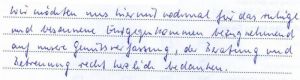 wir möchten uns hiermit nochmal für das ruhige
und besonnene Entgegenkommen bezugnehmend
auf unsere Gemütsverfassung, der Beratung und
Betreuung recht herzlich bedanken.